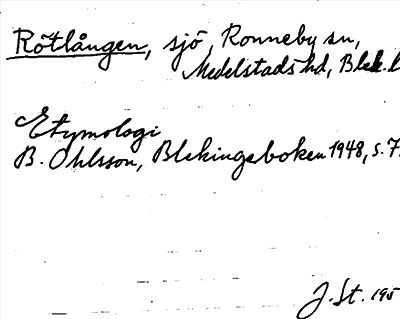 Rötlången, sjö, Ronneby sn,
Medelstads hd, Blek. l
Etymologi
B. Ohlsson, Blekingeboken 1948, s. 7
J. St. 195